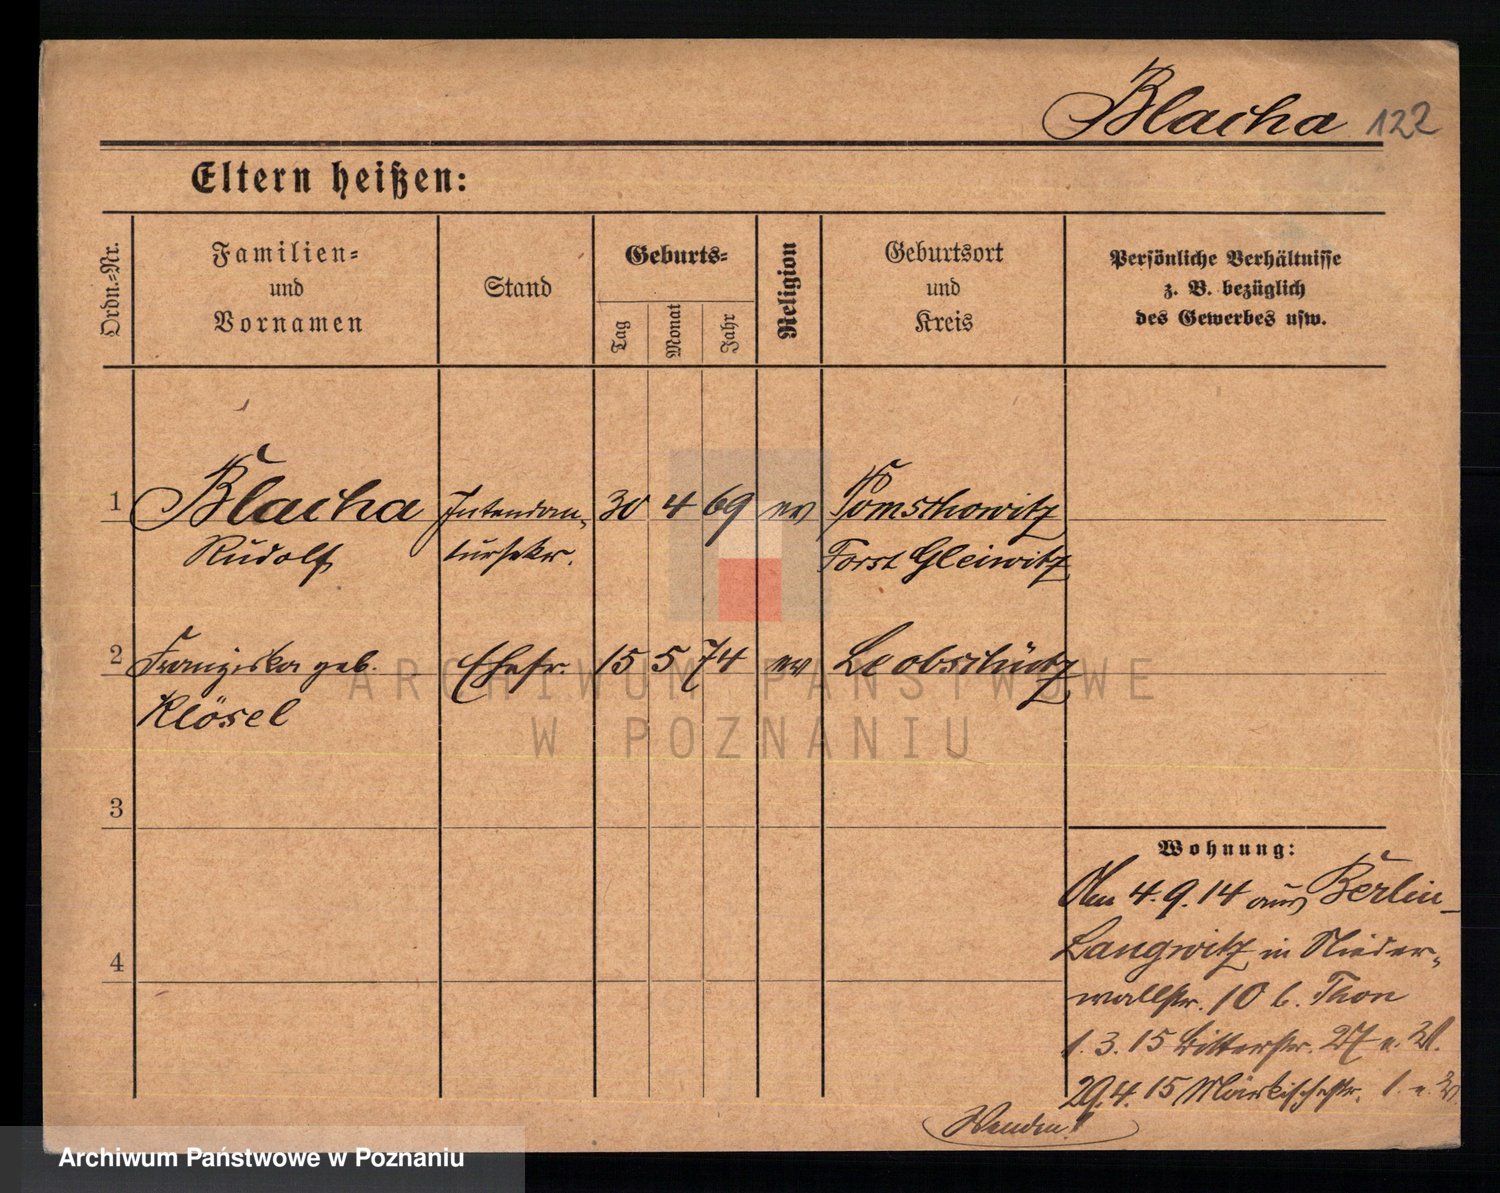 Blacha 122
Eltern heißen:
Ordn.-Nr.
Familien-
und
Vornamen
Stand
Geburts-
Tag
Monat
Jahr
Religion
Geburtsort
und
Kreis
Persönliche Verhältnisse
z. B. bezüglich
des Gewerbes usw.
1 Blacha Intendan- 30 4 69 ev Pomschowitz
Rudolf tursekr. Forst Gleiwitz
2 Franziska geb. Ehefr. 15 5 74 ev Leobschütz
Klösel
3
4
Wohnung:
Am 4.9.14 aus Berlin-
Langwitz in Nieder-
wallstr. 10 b. Thon
1.3.15 Ritterstr. 27 e.
29.4.15 Märkischestr. 1.
Wenden!
ARCHIWUM PAŃSTWOWE
W POZNANIU
Archiwum Państwowe w Poznaniu